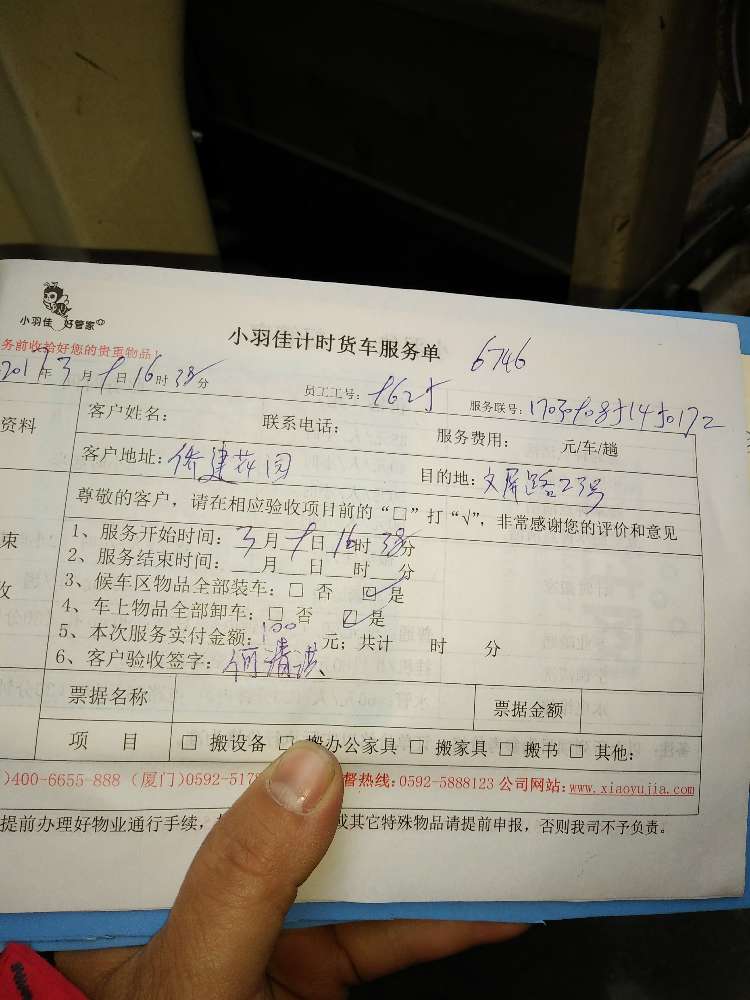 小羽佳 好管家
小羽佳计时货车服务单 6746
务前收拾好您的贵重物品!
2017年3月9日16时38分 员工工号: 服务联号:
资料 客户姓名: 联系电话: 服务费用: 元/车/趟
客户地址: 侨建花园 目的地: 文屏路23号
尊敬的客户,请在相应验收项目前的“□”打“√”,非常感谢您的评价和意见
束 1、服务开始时间: 3月9日16时38分
2、服务结束时间: 月 日 时 分
收 3、候车区物品全部装车: □ 否 ☑ 是
4、车上物品全部卸车: □ 否 ☑ 是
5、本次服务实付金额: 100 元; 共计 时 分
6、客户验收签字: 何清洪
票据名称 票据金额
项 目 □ 搬设备 □ 搬办公家具 □ 搬家具 □ 搬书 □ 其他:
)400-6655-888 (厦门)0592-517 督热线:0592-5888123 公司网站:www.xiaoyujia.com
提前办理好物业通行手续, 或其它特殊物品请提前申报,否则我司不予负责。